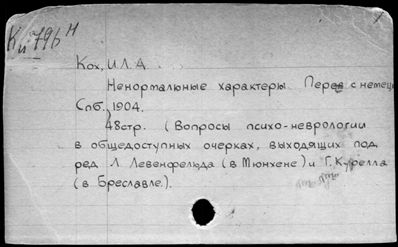 Ки 79б Н
Кох, И.Л.А.
Ненормальные характеры. Перев с немец
Спб., 1904.
48стр. (Вопросы психо-неврологии
в общедоступных очерках, выходящих под
ред. Л. Левенфельда (в Мюнхене) и Г. Курелла
(в Бреславле.).